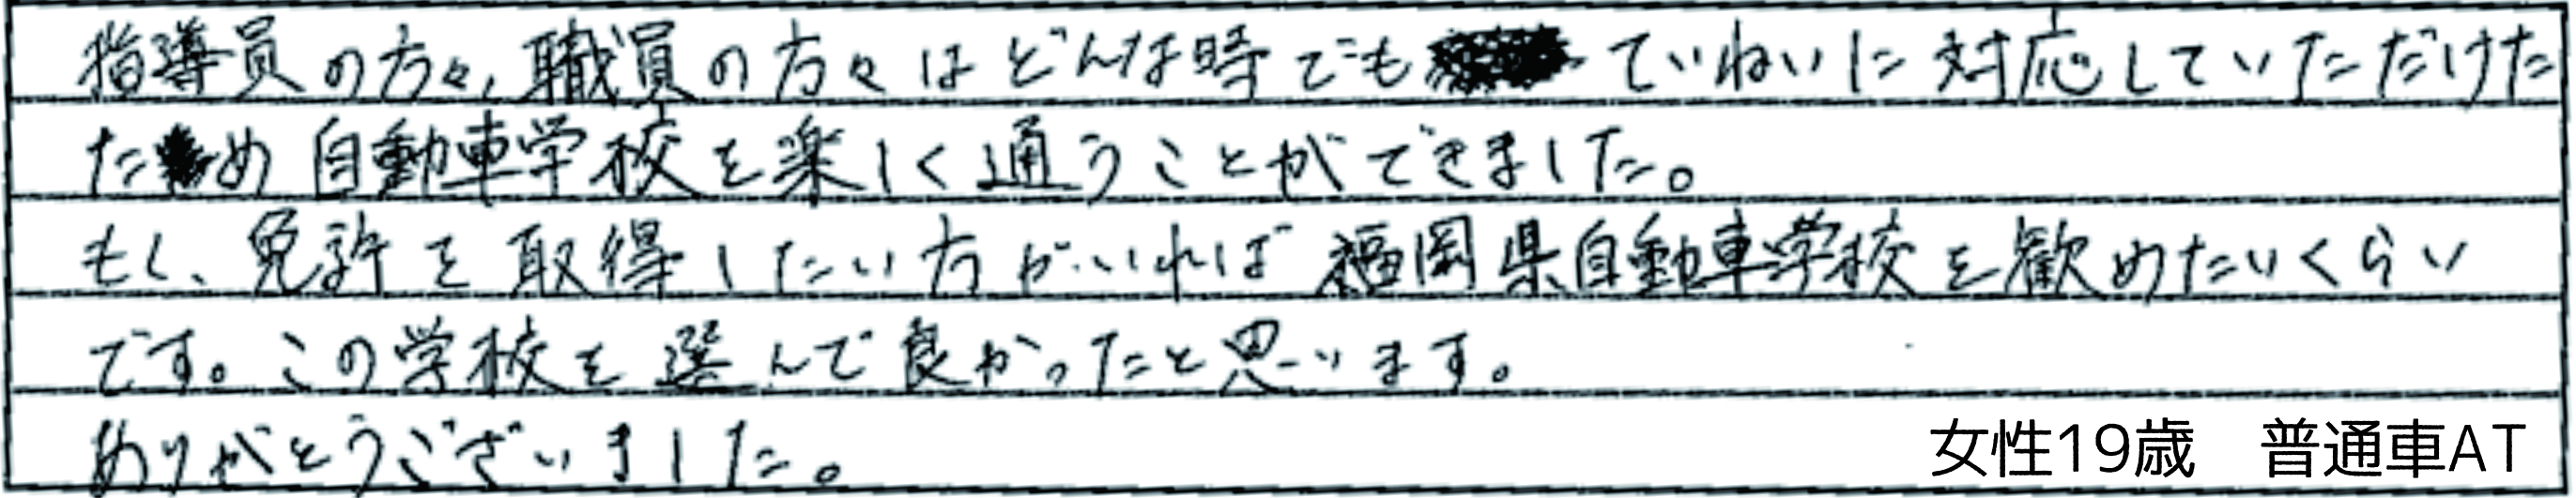 指導員の方々、職員の方々はどんな時でもていねいに対応していただけた
ため自動車学校を楽しく通うことができました。
もし、免許を取得したい方がいれば福岡県自動車学校を歓めたいくらい
です。この学校を選んで良かったと思います。
ありがとうございました。
女性19歳 普通車AT